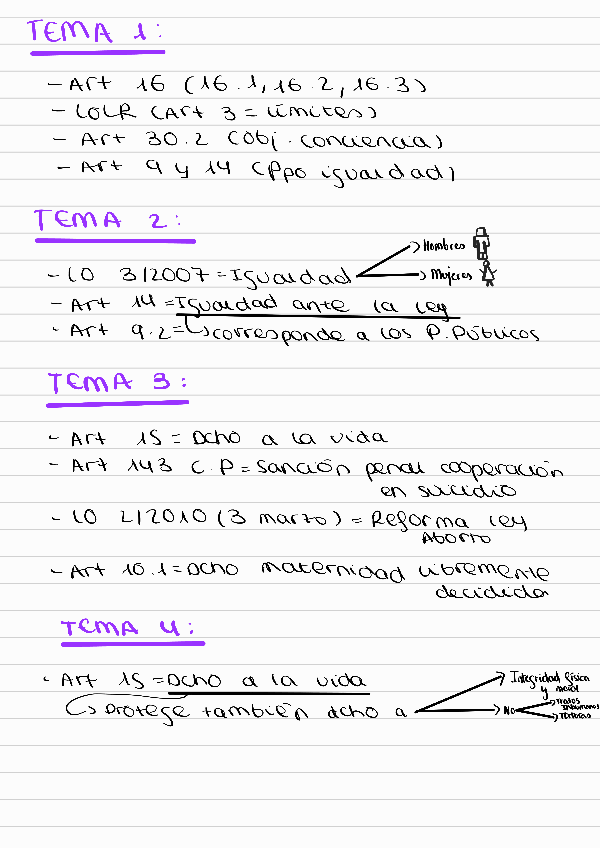 TEMA 1:
- Art 16 (16.1, 16.2, 16.3)
- LOLR (Art 3 = límites)
- Art 30.2 (Obj. conciencia)
- Art 9 y 14 (Ppo igualdad)
TEMA 2:
Hombres
- LO 3/2007 = Igualdad
Mujeres
- Art 14 = Igualdad ante la ley
- Art 9.2 = corresponde a los P. Públicos
TEMA 3:
- Art 15 = Dcho a la vida
- Art 143 C.P = Sanción penal cooperación
en suicidio
- LO 2/2010 (3 marzo) = Reforma ley
Aborto
- Art 10.1 = Dcho maternidad libremente
decidida
TEMA 4:
- Art 15 = Dcho a la vida
Integridad física
y moral
Protege también dcho a
No
Tratos
inhumanos
Torturas